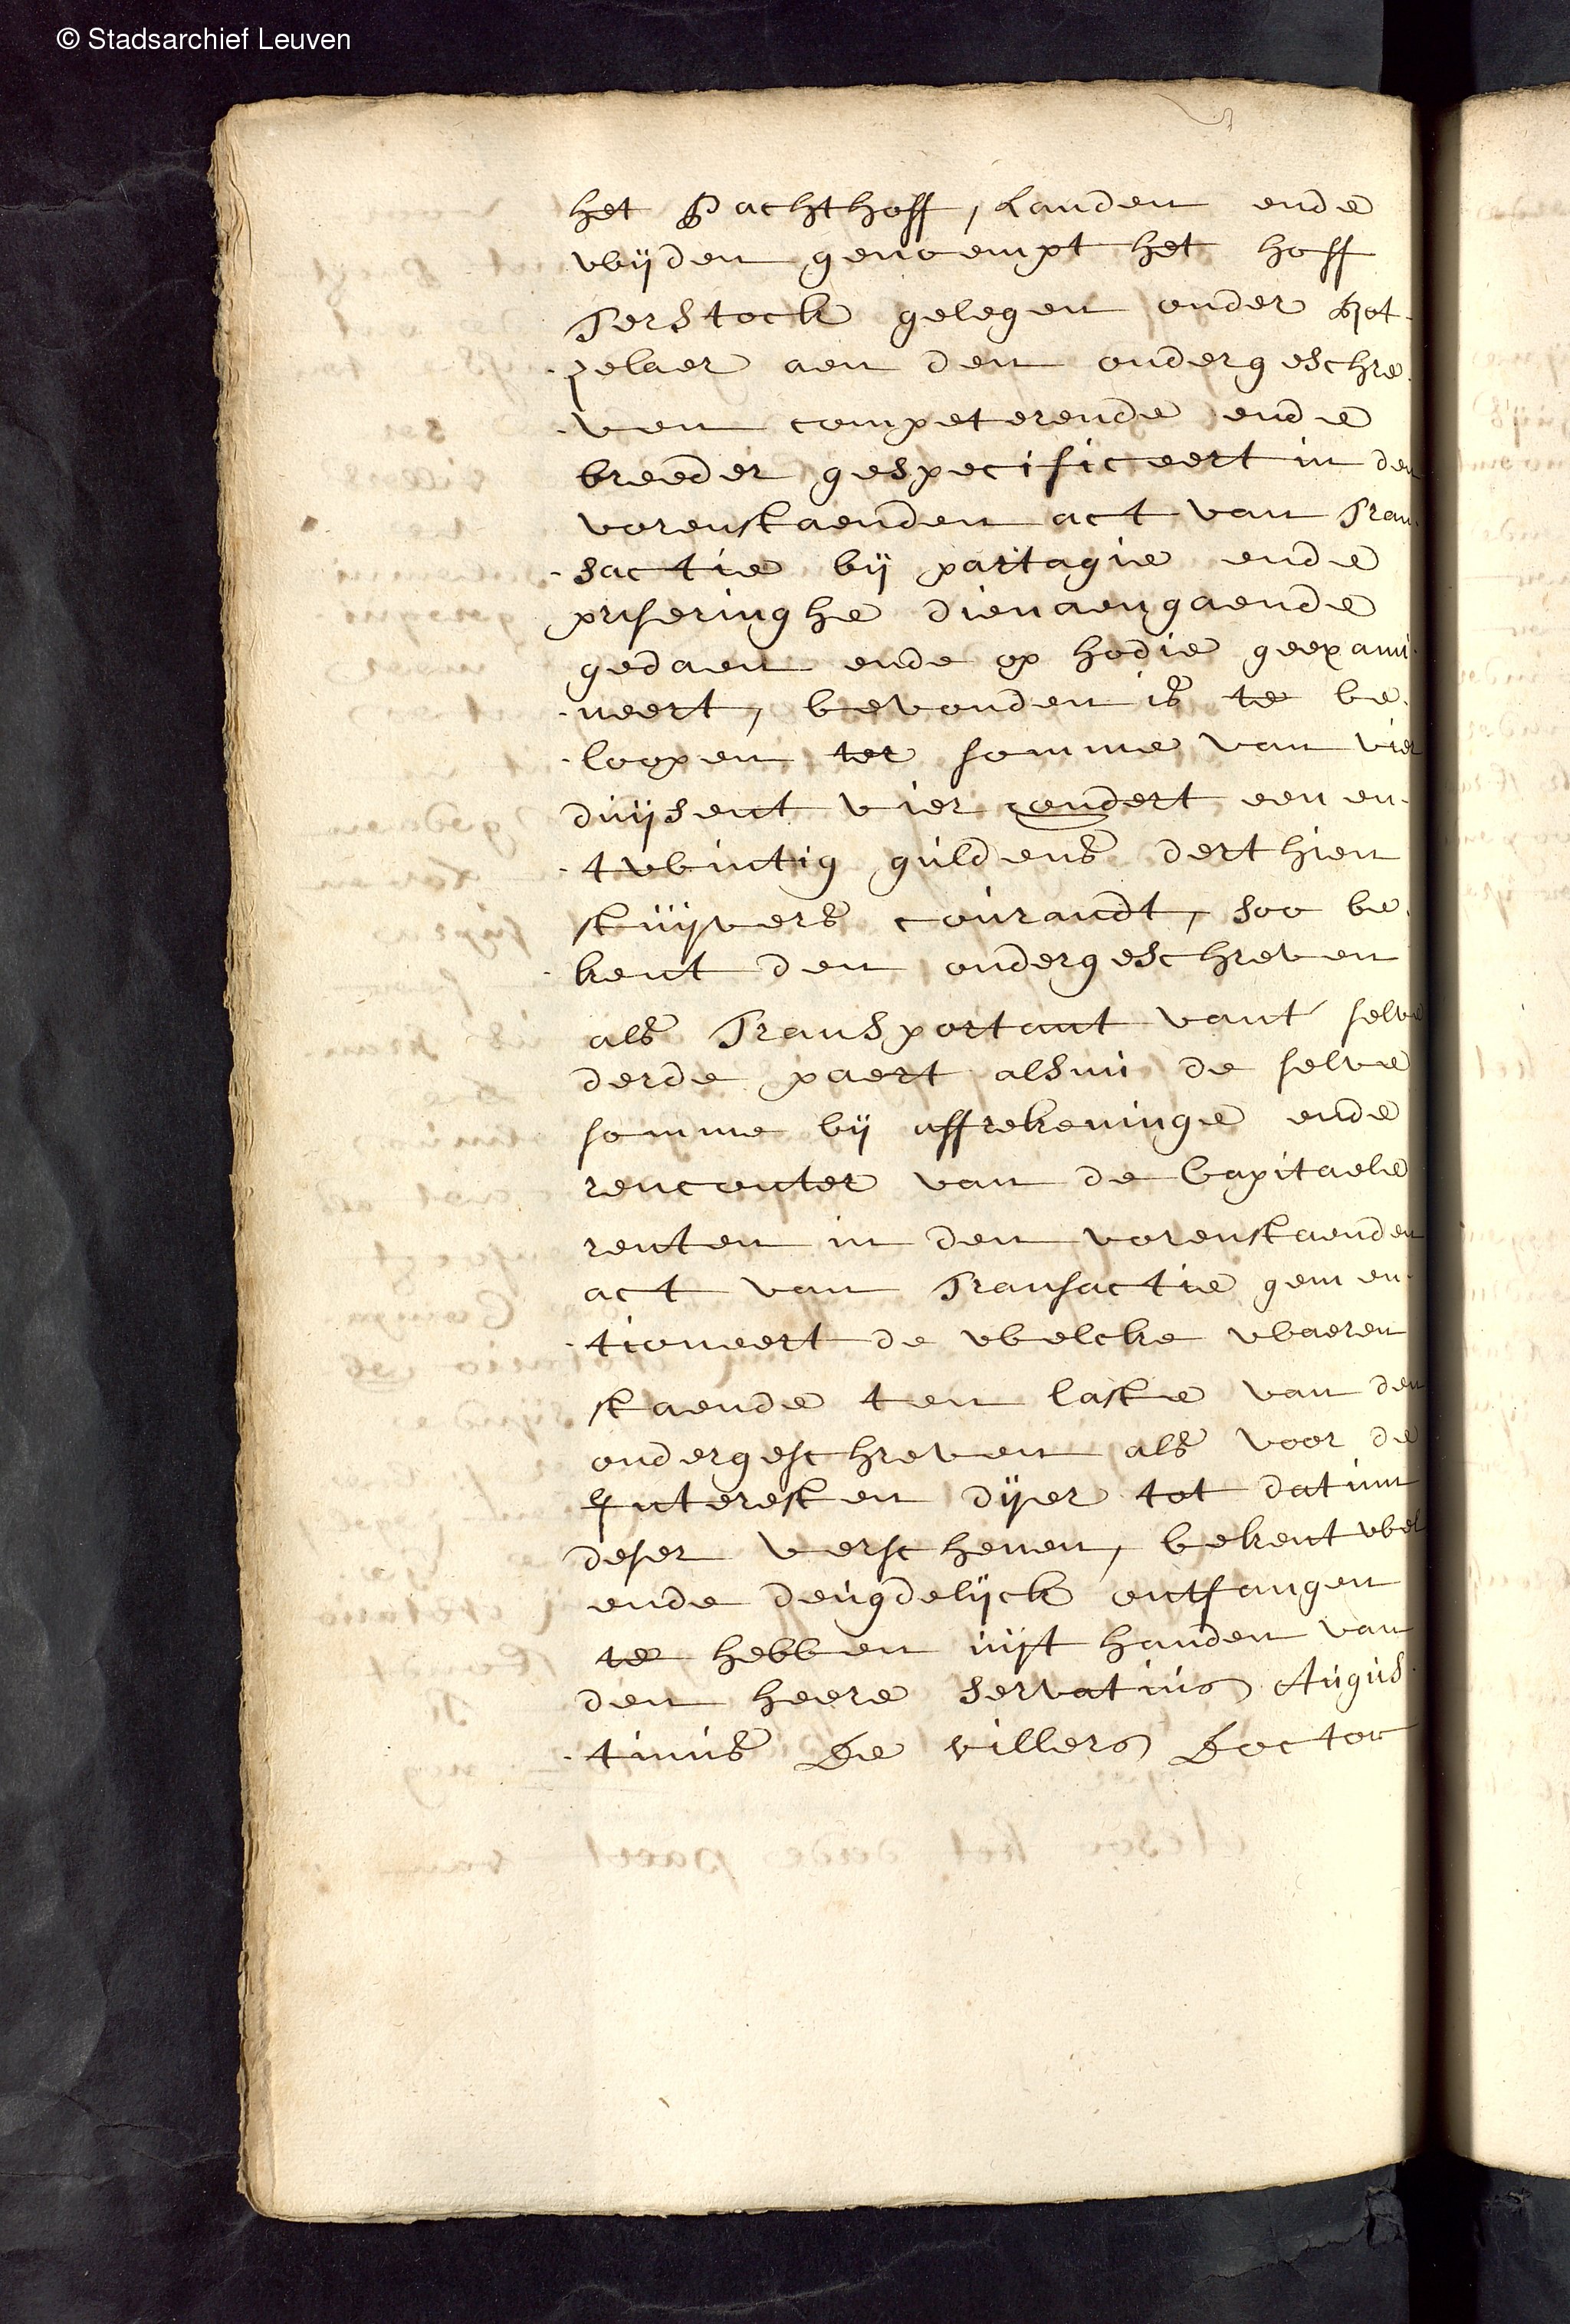 © Stadsarchief Leuven
het Pachthoff, Landen ende
wijden genoempt het hoff
Terstock gelegen onder Rot-
-pelaer aen den ondergeschre-
-ven competerende ende
breeder gespecificeert in den
vorenstaenden act van Tran-
-sactie bij partagie ende
priseringhe dienaengaende
gedaen ende op hodie geexami-
-neert, bevonden is te be-
-loopen ter somme van vier
duijsent vier ondert een en-
-twintig guldens derthien
stuijvers courandt, soo be-
-kent den ondergeschreven
als Transportant vant selve
derde paert alsnu de selve
somme bij affrekeninge ende
renconter van de Capitaele
renten in den vorenstaenden
act van Transactie gemen-
-tioneert de welcke waeren
staende ten laste van den
ondergeschreven als voor de
Interesten dijer tot datum
deser verschenen, bekent wel
ende deugdelijck ontfangen
te hebben uijt handen van
den heere Servatius Augus-
-tinus De Villers Doctor